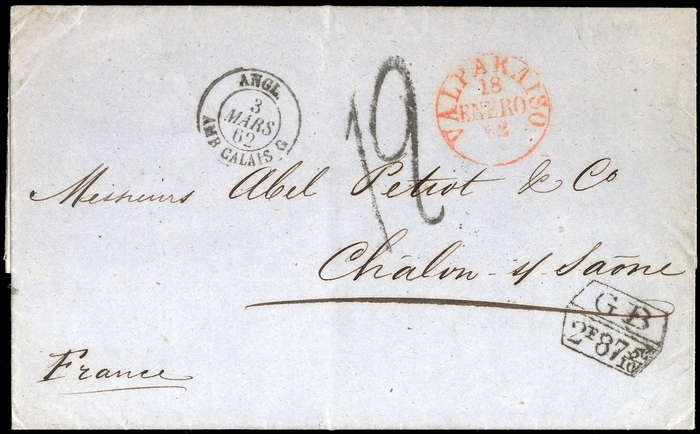 ANGL.
3
MARS
62
AMB CALAIS G
12
VALPARAISO
18
ENERO
62
Messieurs Abel Petiot & Co
Châlon s/ Saône
GB
2F87 5c/10
France